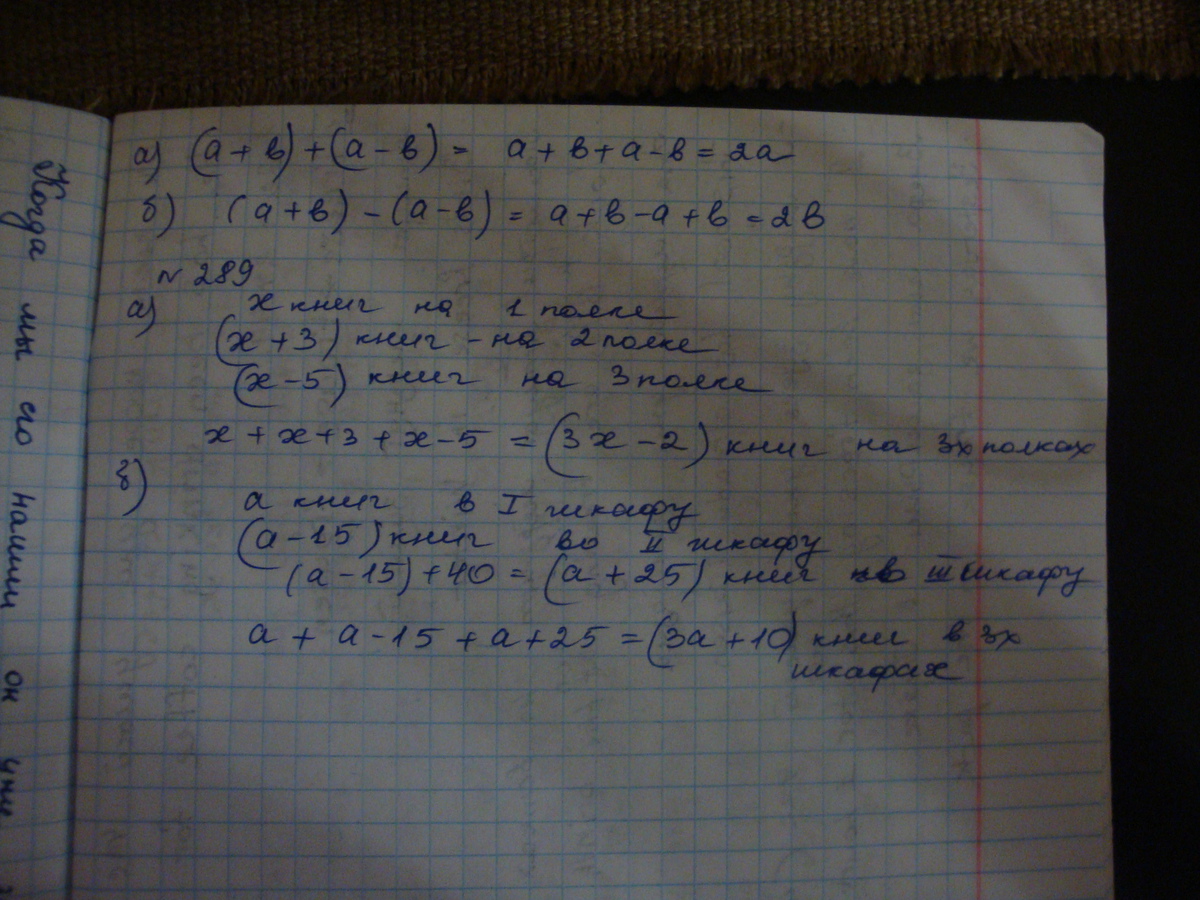 Когда мы его нашли он уже
а) (а + в) + (а - в) = а + в + а - в = 2а
б) (а + в) - (а - в) = а + в - а + в = 2в
N 289
а) х книг на 1 полке
(х + 3) книг - на 2 полке
(х - 5) книг на 3 полке
х + х + 3 + х - 5 = (3х - 2) книг на 3х полках
б)
а книг в I шкафу
(а - 15) книг во II шкафу
(а - 15) + 40 = (а + 25) книг в III шкафу
а + а - 15 + а + 25 = (3а + 10) книг в 3х
шкафах